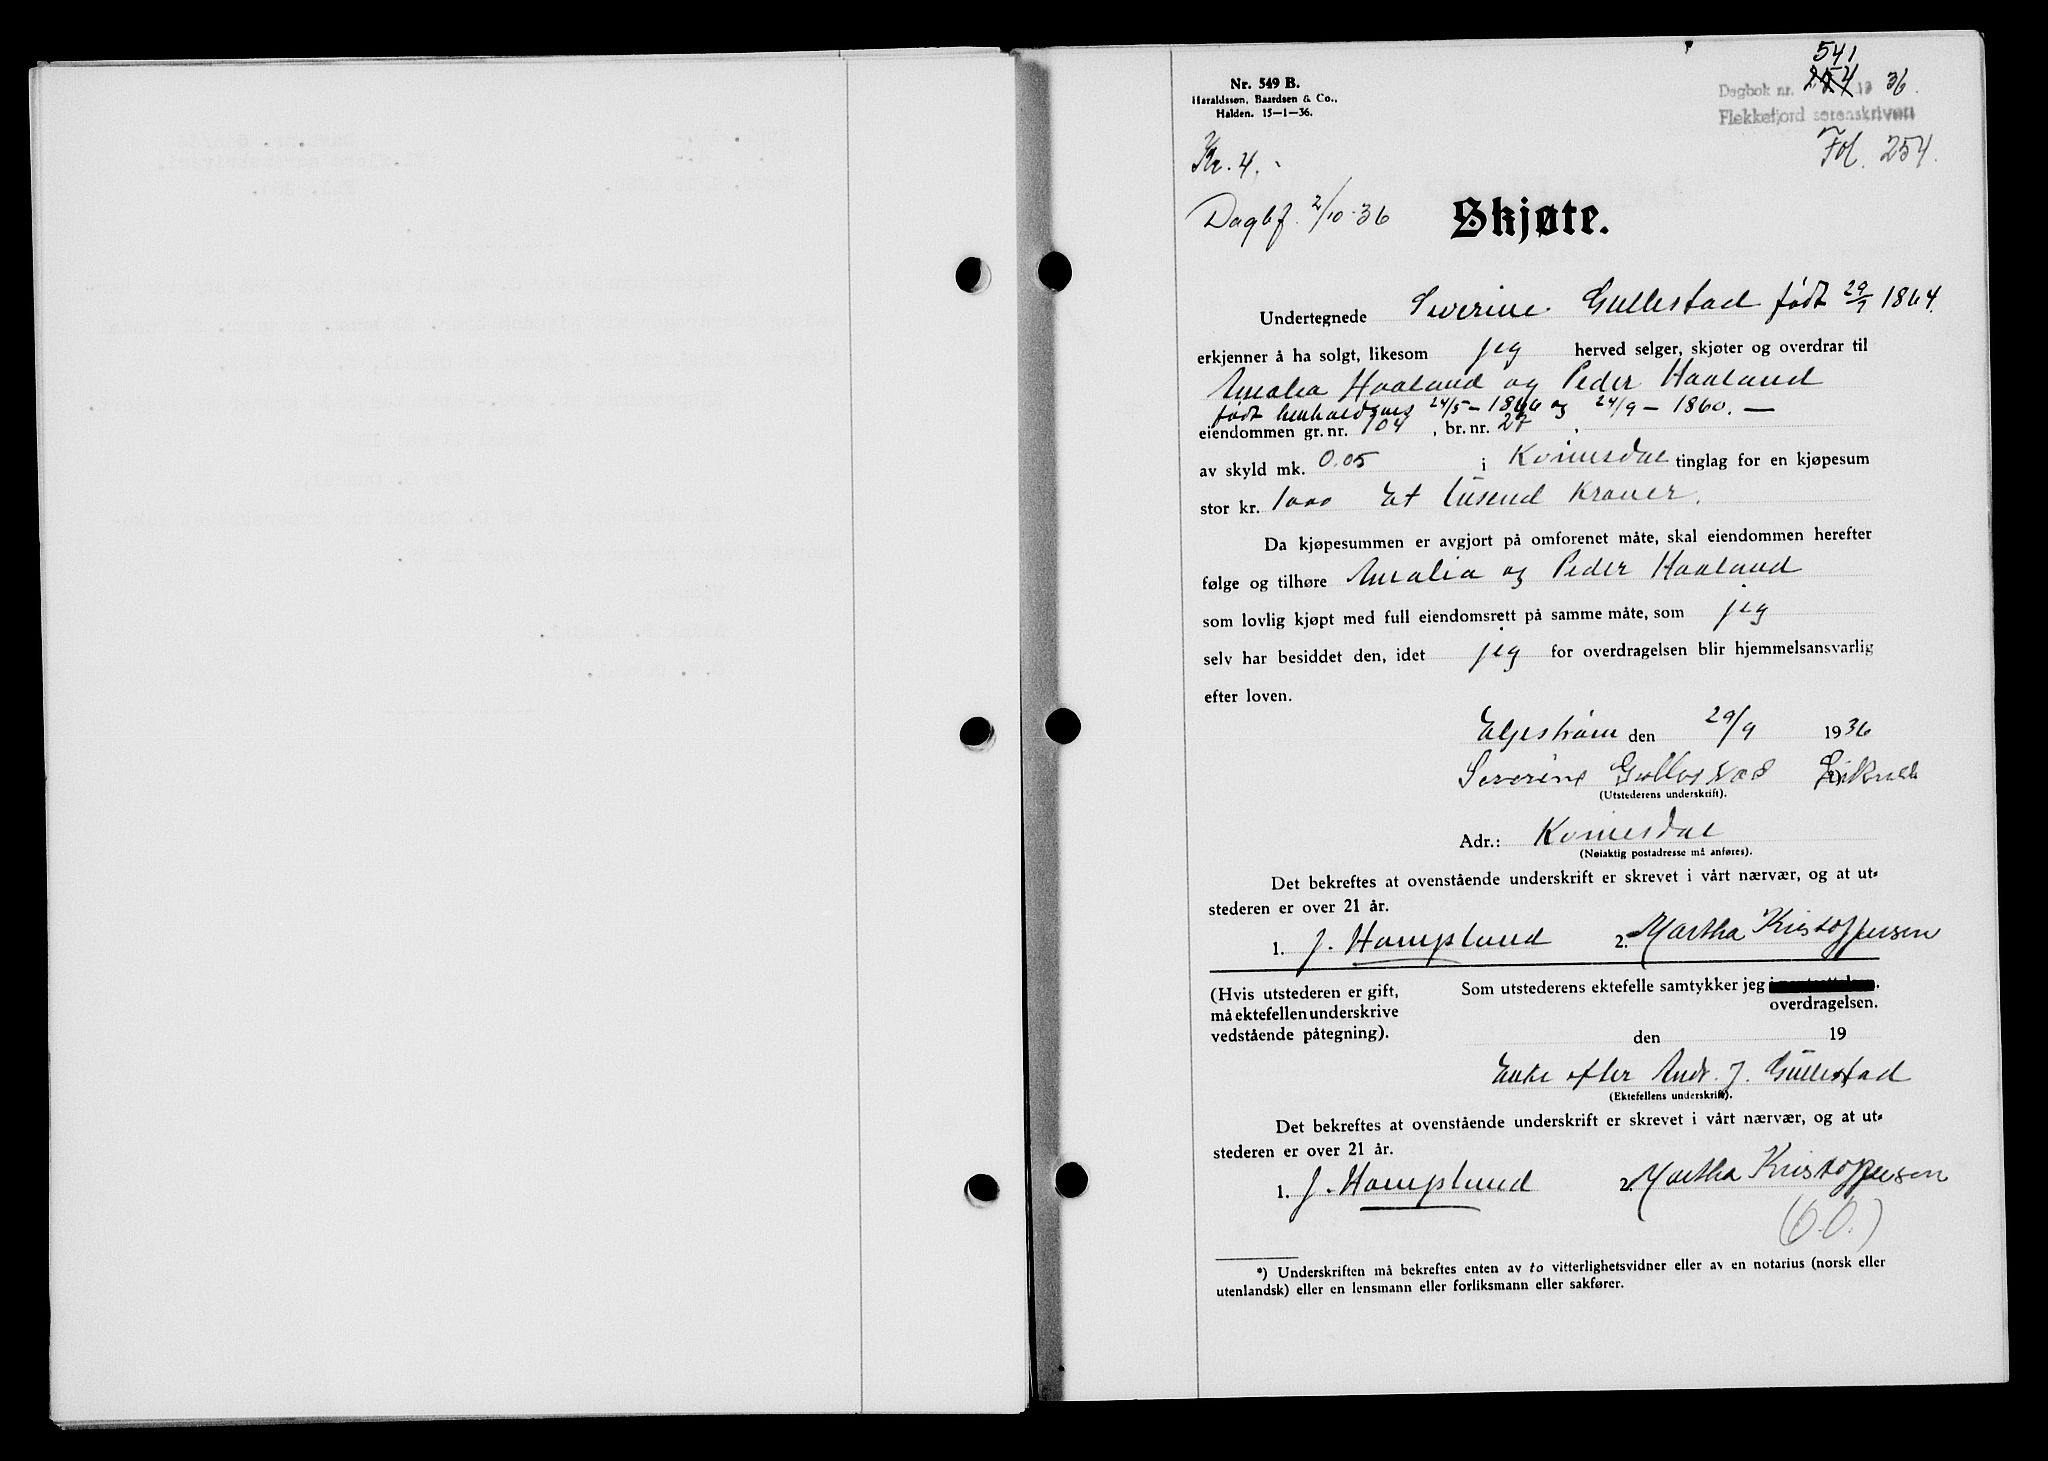 541
Nr. 549 B.
Haraldssøn, Baardsen & Co.,
Halden. 15—1—36.
Dagbok nr. 254 19 36.
Flekkefjord sorenskriveri
Fol. 254.
Kr. 4.-
Dagbf. 2/10-36
Skjøte.
Undertegnede Severine Gullestad født 29/9 1864.
erkjenner å ha solgt, likesom jeg herved selger, skjøter og overdrar til
Amalia Haaland og Peder Haaland
født henholdsvis 24/5 – 1866 og 24/9 – 1860. —
eiendommen gr. nr. 104, br. nr. 27,
av skyld mk. 0.05 i Kvinesdal tinglag for en kjøpesum
stor kr. 1000 Et tusend kroner.
Da kjøpesummen er avgjort på omforenet måte, skal eiendommen herefter
følge og tilhøre Amalia og Peder Haaland
som lovlig kjøpt med full eiendomsrett på samme måte, som jeg
selv har besiddet den, idet jeg for overdragelsen blir hjemmelsansvarlig
efter loven.
den 29/9 1936
Severine Gullestad
(Utstederens underskrift).
Adr.: Kvinesdal
(Nøiaktig postadresse må anføres).
Det bekreftes at ovenstående underskrift er skrevet i vårt nærvær, og at ut-
stederen er over 21 år.
1. J. Hamslund 2. Martha Kristoffersen
(Hvis utstederen er gift,
må ektefellen underskrive
vedstående påtegning).
Som utstederens ektefelle samtykker jeg
overdragelsen.
den 19
Enke efter Andr. J. Gullestad
(Ektefellens underskrift).
Det bekreftes at ovenstående underskrift er skrevet i vårt nærvær, og at ut-
stederen er over 21 år.
1. J. Hamslund 2. Martha Kristoffersen
(O.O.)
*) Underskriften må bekreftes enten av to vitterlighetsvidner eller av en notarius (norsk eller
utenlandsk) eller en lensmann eller forliksmann eller sakfører.